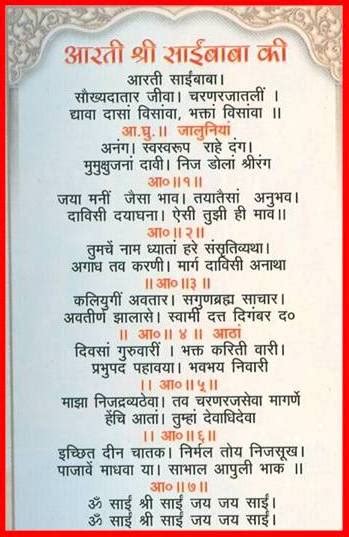 आरती श्री साईबाबा की
आरती साईबाबा।
सौख्यदातार जीवा। चरणरजातलीं ।
द्यावा दासां विसांवा, भक्तां विसांवा ॥
आ.घु.॥ जाळुनियां
अनंग। स्वस्वरूप राहे दंग।
मुमुक्षुजनां दावी। निज डोलां श्रीरंग
आ०॥१॥
जया मनीं जैसा भाव। तयातैसां अनुभव।
दाविसी दयाघना। ऐसी तुझी ही माव॥
आ०॥२॥
तुमचें नाम ध्याता हरे संसृतिव्यथा।
अगाध तव करणी। मार्ग दाविसी अनाथा
॥ आ०॥३॥
कलियुगीं अवतार। सगुणब्रह्म साचार।
अवतीर्ण झालासे। स्वामीं दत्त दिगंबर द०
॥ आ०॥ ४ ॥ आठां
दिवसां गुरुवारीं । भक्त करिती वारी।
प्रभुपद पहावया। भवभय निवारी
।। आ०॥५॥
माझा निजद्रव्यठेवा। तव चरणरजसेवा मागर्णे
हेंचि आतां। तुम्हां देवाधिदेवा
।। आ०॥६॥
इच्छित दीन चातक। निर्मल तोय निजसूख।
पाजावें माधवा या। साभाल आपुली भाक ॥
आ०॥७॥
ॐ साईं श्री साईं जय जय साईं।
ॐ साईं श्री साईं जय जय साईं।